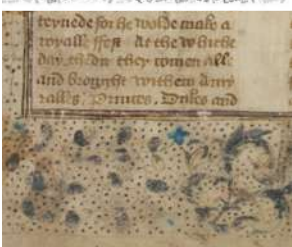 teynede for he wolde make a
royall ffest At the whiche
day thedir they comen all
and brought with hem Amy
ralles Princes Dukes and